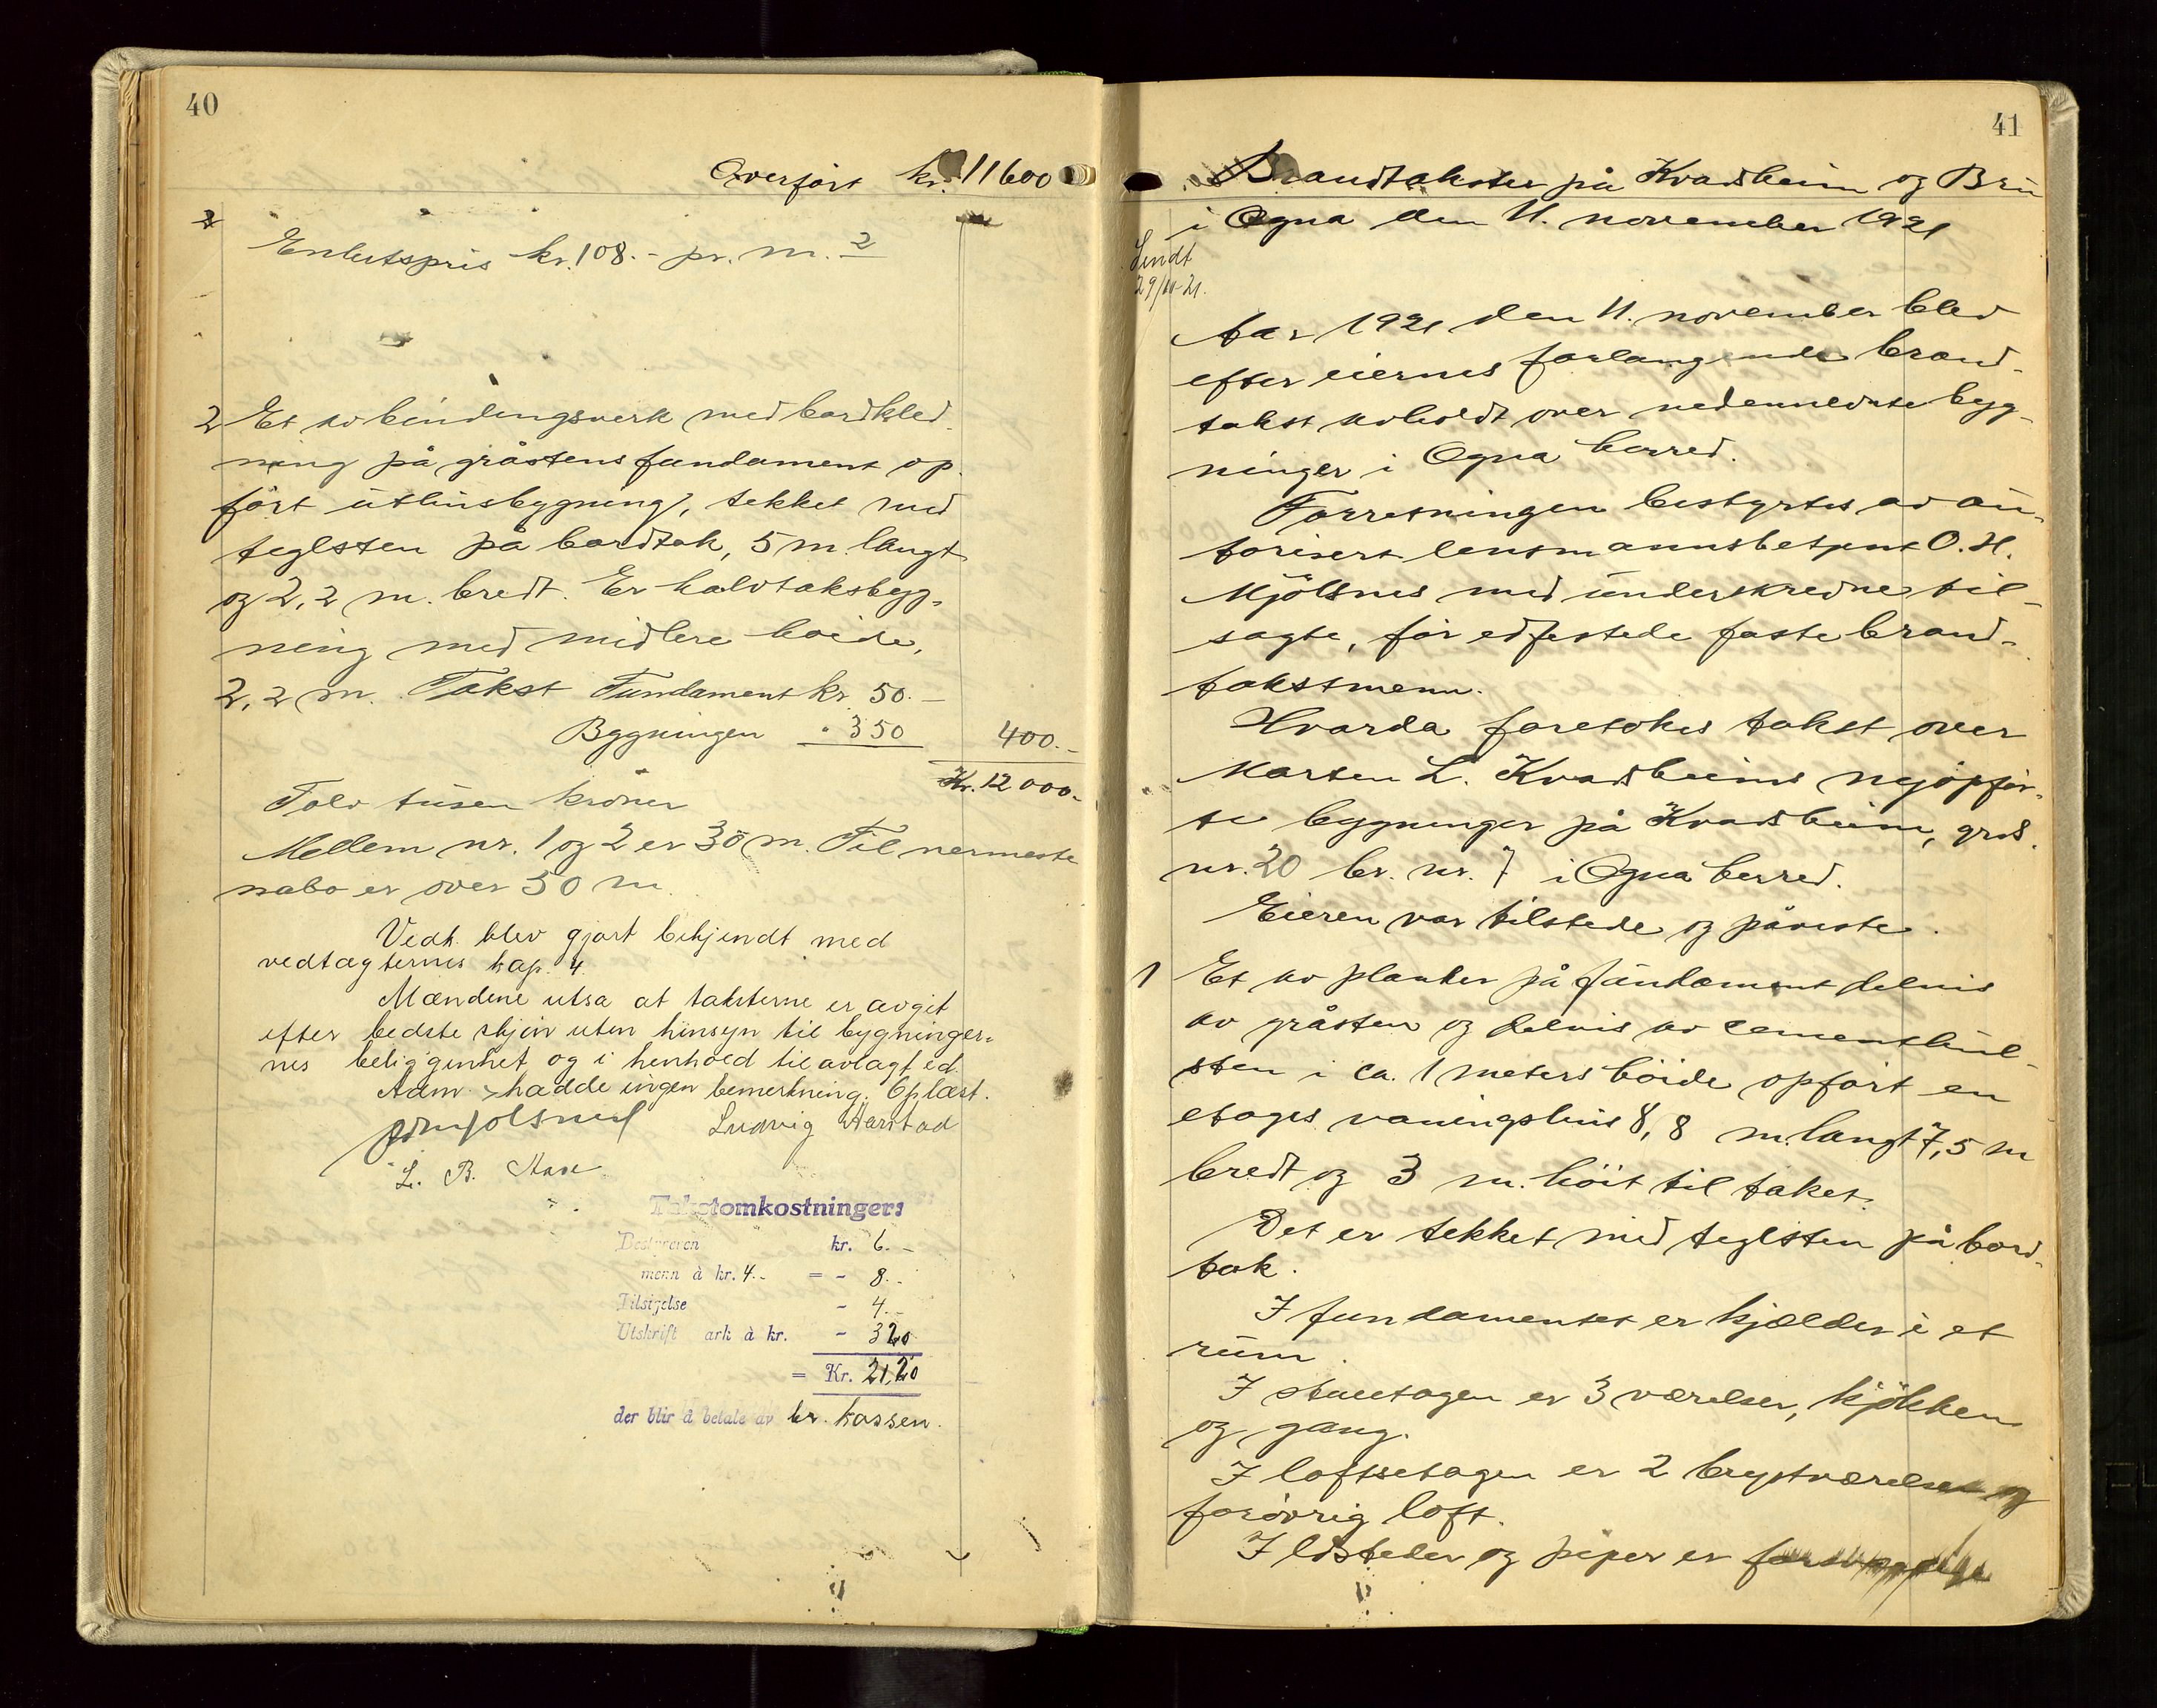 40
Overført kr. 11600
Enhetspris kr. 108.- pr. m.2
2 Et av bindingsverk med bordkled-
ning på gråstens fundament op-
ført uthusbygning, tekket med
teglsten på bordtak, 5 m. langt
og 2,2 m. bredt. Er halvtaksbyg-
ning med midlere høide,
2,2 m. Takst Fundament kr. 50.-
Bygningen " 350 400.-
Kr. 12000.-
Tolv tusen kroner
Mellem nr. 1 og 2 er 30 m. Til nermeste
nabo er over 50 m.
Vedk. blev gjort bekjendt med
vedtægternes kap. 4.
Mændene utsa at taksterne er avgit
efter bedste skjøn uten hinsyn til bygninger-
nes beliggenhet og i henhold til avlagt ed.
Adm. hadde ingen bemerkning. Oplæst.
Ludvig Aarstad
L. B.
Takstomkostninger:
Bestyreren kr. 6.-
menn à kr. 4.- = - 8.-
Tilsigelse - 4.-
Utskrift ark à kr. - 3 20
= Kr. 21,20
der blir å betale av br. kassen.
41
Brandtakster på Kvadsheim og Bru
i Ogna den 11. november 1921
Sendt
29/11-21.
Aar 1921 den 11. november blev
efter eiernes forlangende brand-
takst avholdt over nedennevnte byg-
ninger i Ogna herred.
Forretningen bestyrtes av au-
torisert lensmannsbetjent O. H.
Mjølsnes med underskredne til-
sagte, før edfestede faste brand-
takstmenn.
Hvorda foretokes takst over
Morten L. Kvadsheims nyopfør-
te bygninger på Kvadsheim, grds.
nr. 20 br. nr. 7 i Ogna herred.
Eieren var tilstede og påviste.
1 Et av planker på fundament delvis
av gråsten og delvis av cementhul-
sten i ca. 1 meters høide opført en
etages vaningshus 8,8 m. langt 7,5 m
bredt og 3 m. høit til taket.
Det er tekket med teglsten på bord-
tak.
I fundamentet er kjælder i et
rum.
I stueetagen er 3 værelser, kjøkken
og gang.
I loftsetagen er 2 brystværelser og
forøvrig loft.
Ildsteder og piper er